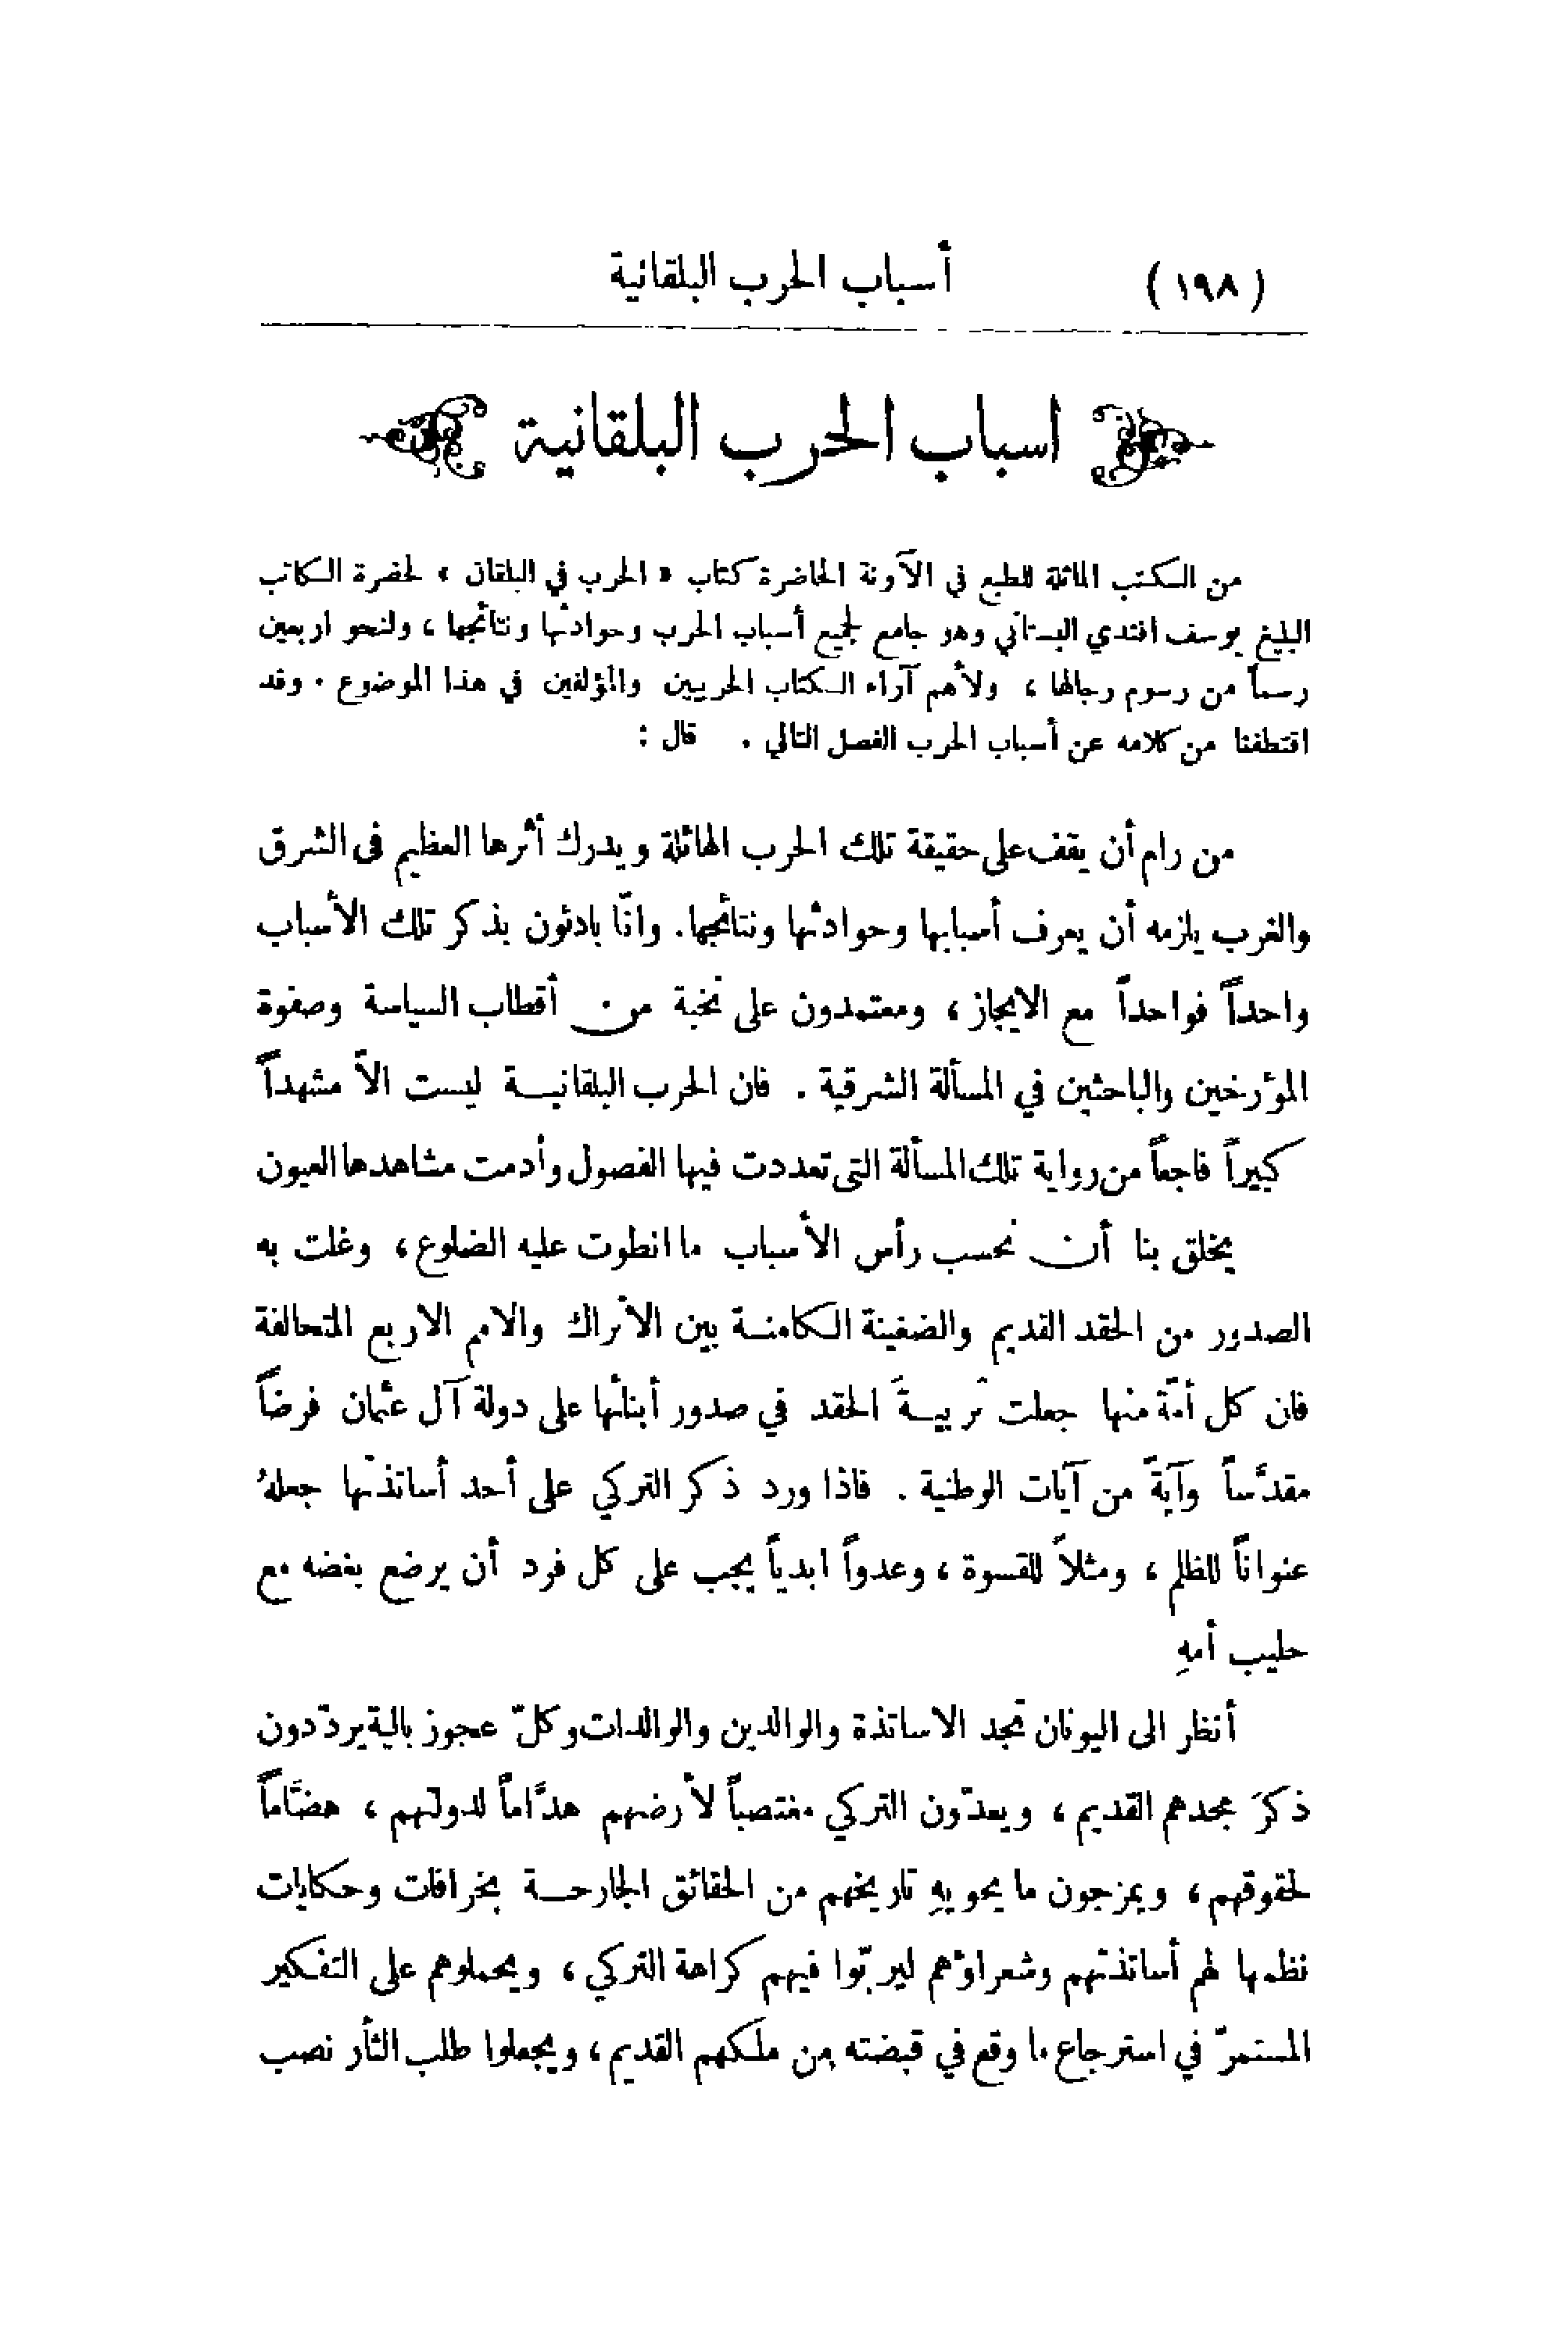 (١٩٨) أسباب الحرب البلقانية
اسباب الحرب البلقانية
من الكتب الماثلة للطبع في الآونة الحاضرة كتاب « الحرب في البلقان » لحضرة الكاتب
البليغ يوسف افندي البستاني وهو جامع لجميع أسباب الحرب وحوادثها ونتائجها ، ولنحو اربعين
رسماً من رسوم رجالها ، ولأهم آراء الكتاب الحربيين والمؤلفين في هذا الموضوع . وقد
اقتطفنا من كلامه عن أسباب الحرب الفصل التالي . قال :
من رام أن يقف على حقيقة تلك الحرب الهائلة ويدرك أثرها العظيم فى الشرق
والغرب يلزمه أن يعرف أسبابها وحوادثها ونتائجها. وانّا بادئون بذكر تلك الأسباب
واحداً فواحداً مع الايجاز ، ومعتمدون على نخبة من أقطاب السياسة وصفوة
المؤرخين والباحثين في المسألة الشرقية . فان الحرب البلقانيـة ليست الاّ مشهداً
كبيراً فاجعاً من رواية تلك المسألة التى تعددت فيها الفصول وأدمت مشاهدها العيون
يخلق بنا أن نحسب رأس الأسباب ما انطوت عليه الضلوع ، وغلت به
الصدور من الحقد القديم والضغينة الكامنـة بين الأتراك والامم الاربع المتحالفة
فان كل أمّة منها جعلت تربيـةَ الحقد في صدور أبنائها على دولة آل عثمان فرضاً
مقدَّساً وآيةً من آيات الوطنية . فاذا ورد ذكر التركي على أحد أساتذتها جعلهُ
عنواناً للظلم ، ومثلاً للقسوة ، وعدواً ابدياً يجب على كل فرد أن يرضع بغضه مع
حليب أمهِ
أنظر الى اليونان تجد الاساتذة والوالدين والوالدات وكلّ عجوز بالية يردّدون
ذكرَ مجدهم القديم ، ويعدّون التركي مغتصباً لأرضهم هدَّاماً لدولتهم ، هضَّاماً
لحقوقهم ، ويمزجون ما يحويهِ تاريخهم من الحقائق الجارحـة بخرافات وحكايات
نظمها لهم أساتذتهم وشعراؤهم ليربّوا فيهم كراهة التركي ، ويحملوهم على التفكير
المستمرّ في استرجاع ما وقع في قبضته من ملكهم القديم ، ويجعلوا طلب الثأر نصب